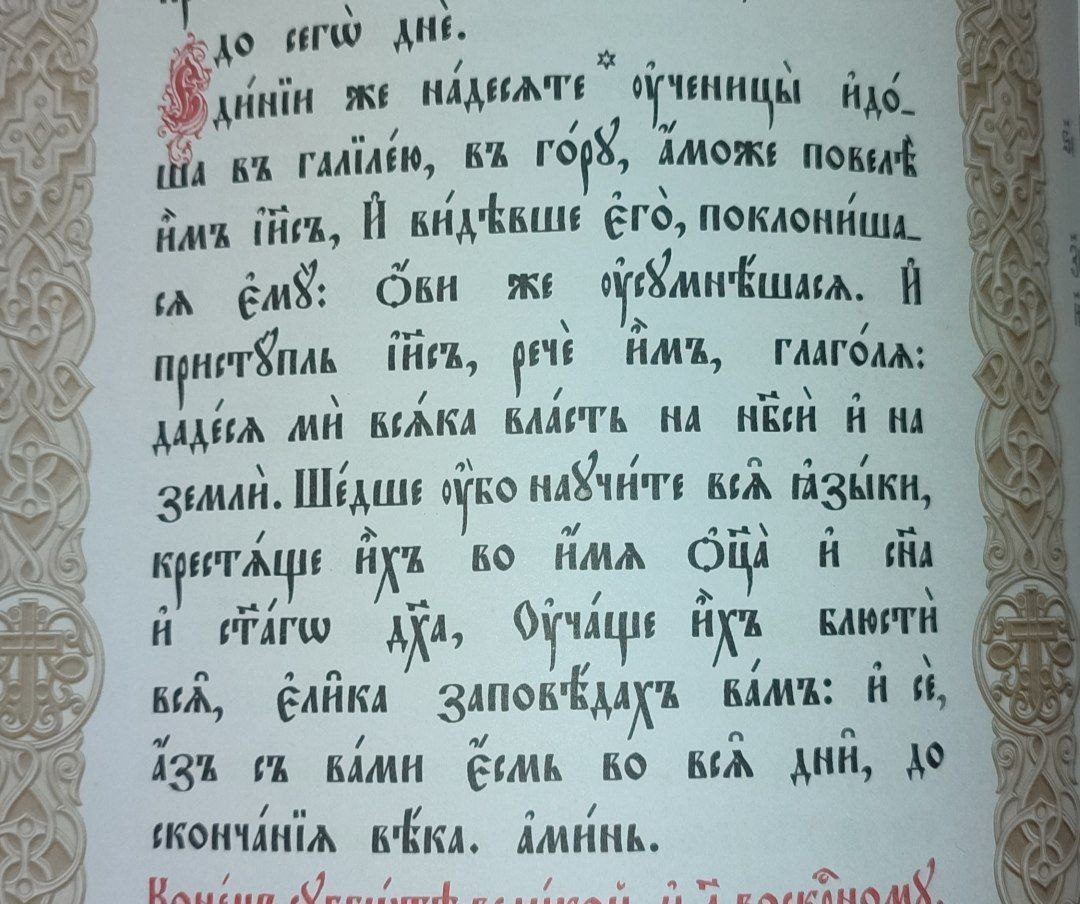 до сегѡ̀ днѐ.
Є҆ди́нїи же на́десѧте * ᲂу҆ченицы̀ и҆до́_
ша въ галїле́ю, въ го́рꙋ, а҆́може повелѣ̀
и҆̀мъ і҆и҃съ, И҆ ви́дѣвше є҆го̀, поклони́ша_
сѧ є҆мꙋ̀: Ѻ҆́ви же ᲂу҆сꙋмнѣ́шасѧ. И҆
пристꙋ́пль і҆и҃съ, речѐ и҆̀мъ, глаго́лѧ:
даде́сѧ мѝ всѧ́ка вла́сть на нб҃сѝ и҆ на
землѝ. Ше́дше ᲂу҆̀бо наꙋчи́те всѧ̑ ꙗ҆зы́ки,
крестѧ́ще и҆̀хъ во и҆́мѧ Ѻ҆ц҃а̀ и҆ сн҃а
и҆ ст҃а́гѡ дх҃а, Оу҆ча́ще и҆̀хъ блюстѝ
всѧ̑, є҆ли̑ка заповѣ́дахъ ва́мъ: и҆ сѐ,
а҆́зъ съ ва́ми є҆́смь во всѧ̑ дни̑, до
сконча́нїѧ вѣ́ка. а҆ми́нь.